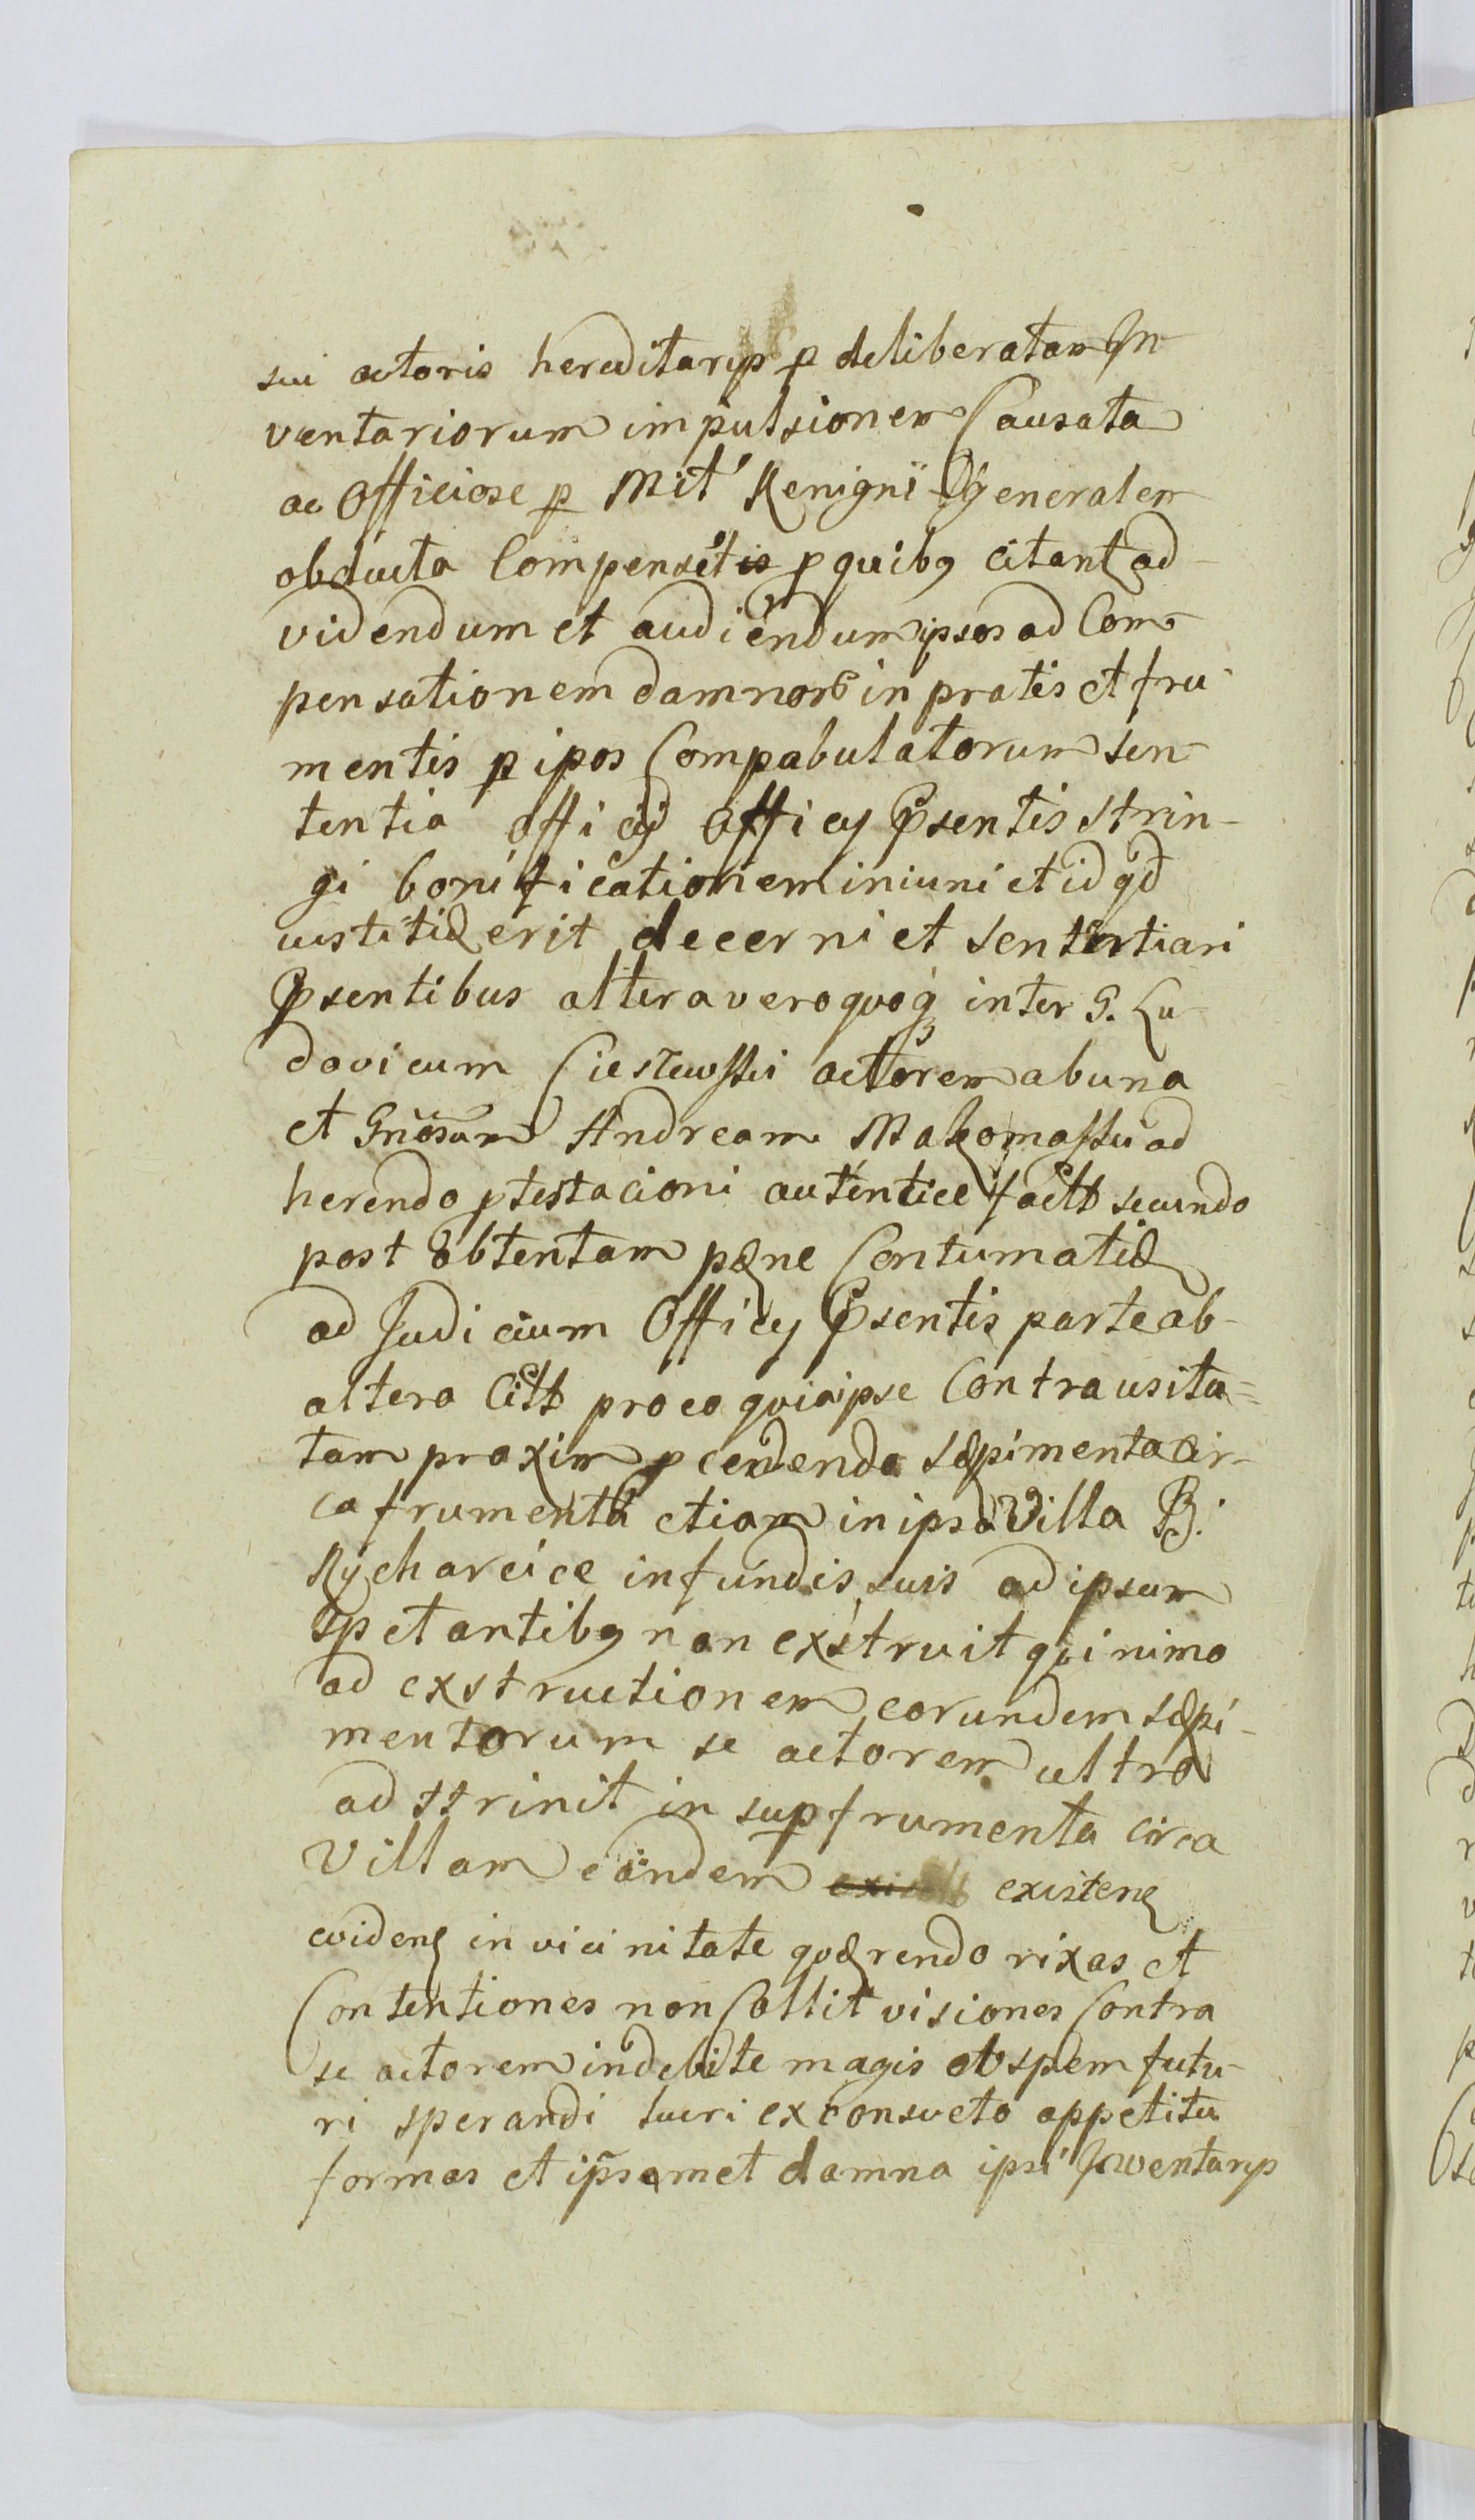 sui actoris hereditarys p deliberatam In
ventariorum impulsionem Causata
ac Officiose p Mit' Renigni Generalem
obducta Compensétis p quibg citant ad
videndum et audiendum ipsos ad Com
pensationem damnor in pratis et fru
mentis p ipos Compabulatorum sen
tentia officij Officy Psentis strin-
gi bonificationem iniuni et id qd
iustitiæ erit decerni et sententiari
Psentibus altera vero quoq inter G. Lu
dovicum actorem ab una
et Gnosum Andream Makomaski ad
herendo ptestacioni autentice factt secundo
post obtentam pæne Contumatiæ
ad Judicium Officy Psentis parte ab
altera Citt pro eo quia ipse Contra usita=
tam proxim p cendenda sæpimenta cir-
ca frumenta etiam in ipsa Villa B:
Rycharcice in fundis suis ad ipsum
spetantibg non exstruit qvinimo
ad exstructionem eorundem sæpi-
mentorum se actorem ultro
adstrinit in sup frumenta circa
Villam eandem existenę
evidenę in vicinitate quærendo rixas et
Contentiones non Collit visiones Contra
se actorem indebite magis ob spem futu-
ri sperandi lucri ex consveto appetitu
formas et ipsemet damna ipsi Inventarys